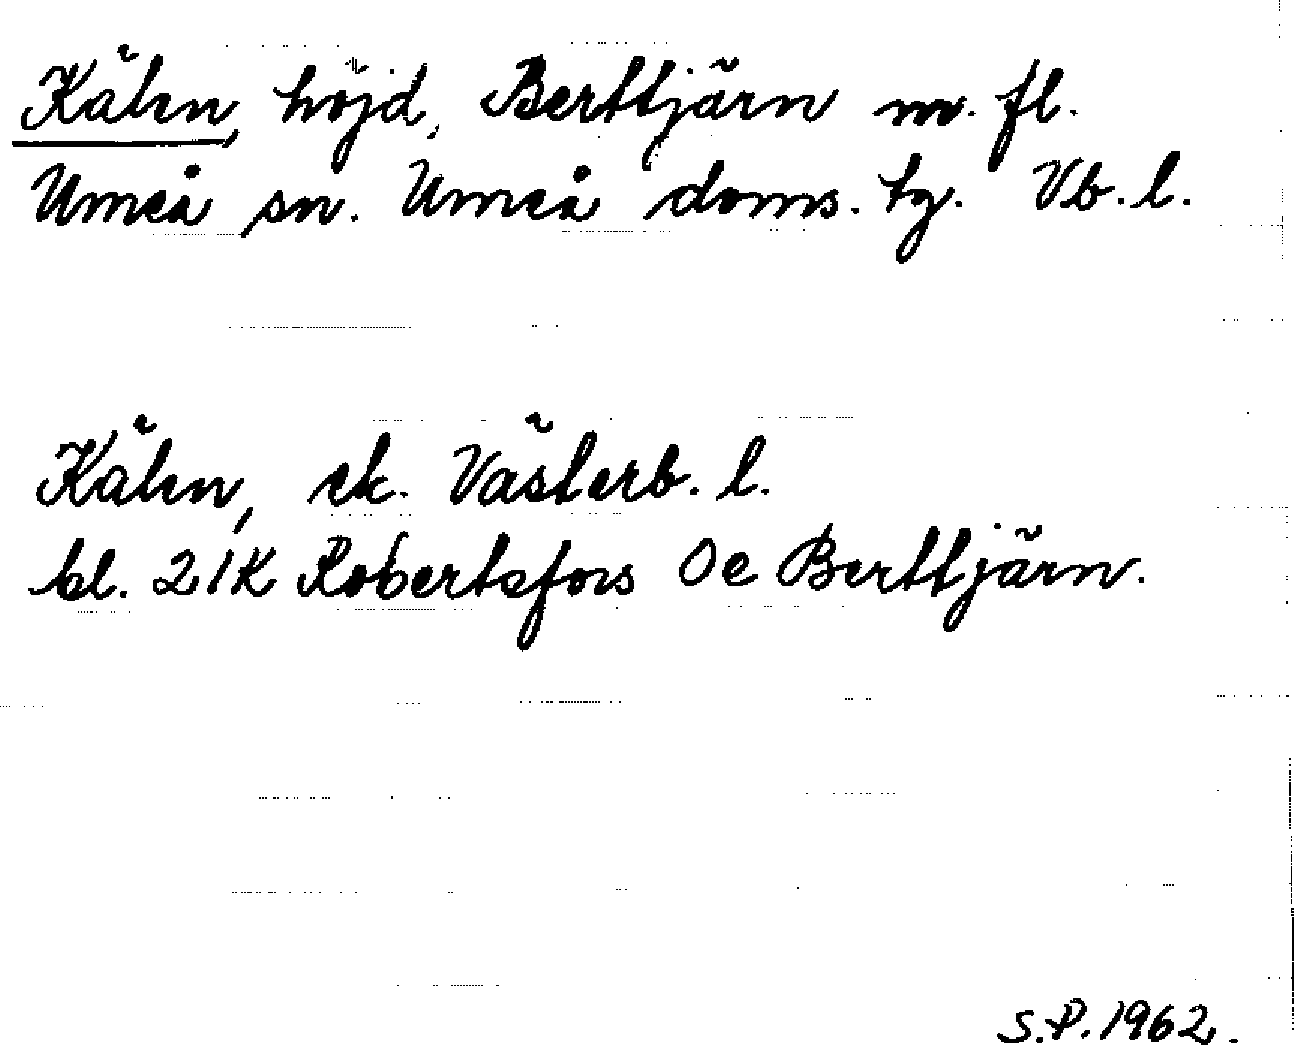 Kälen, höjd, Berttjärn m. fl.
Umeå sn. Umeå doms. tg. Vb. l.
Kälen, ek. Västerb. l.
bl. 21K Robertsfors Oe Berttjärn.
S.P. 1962.